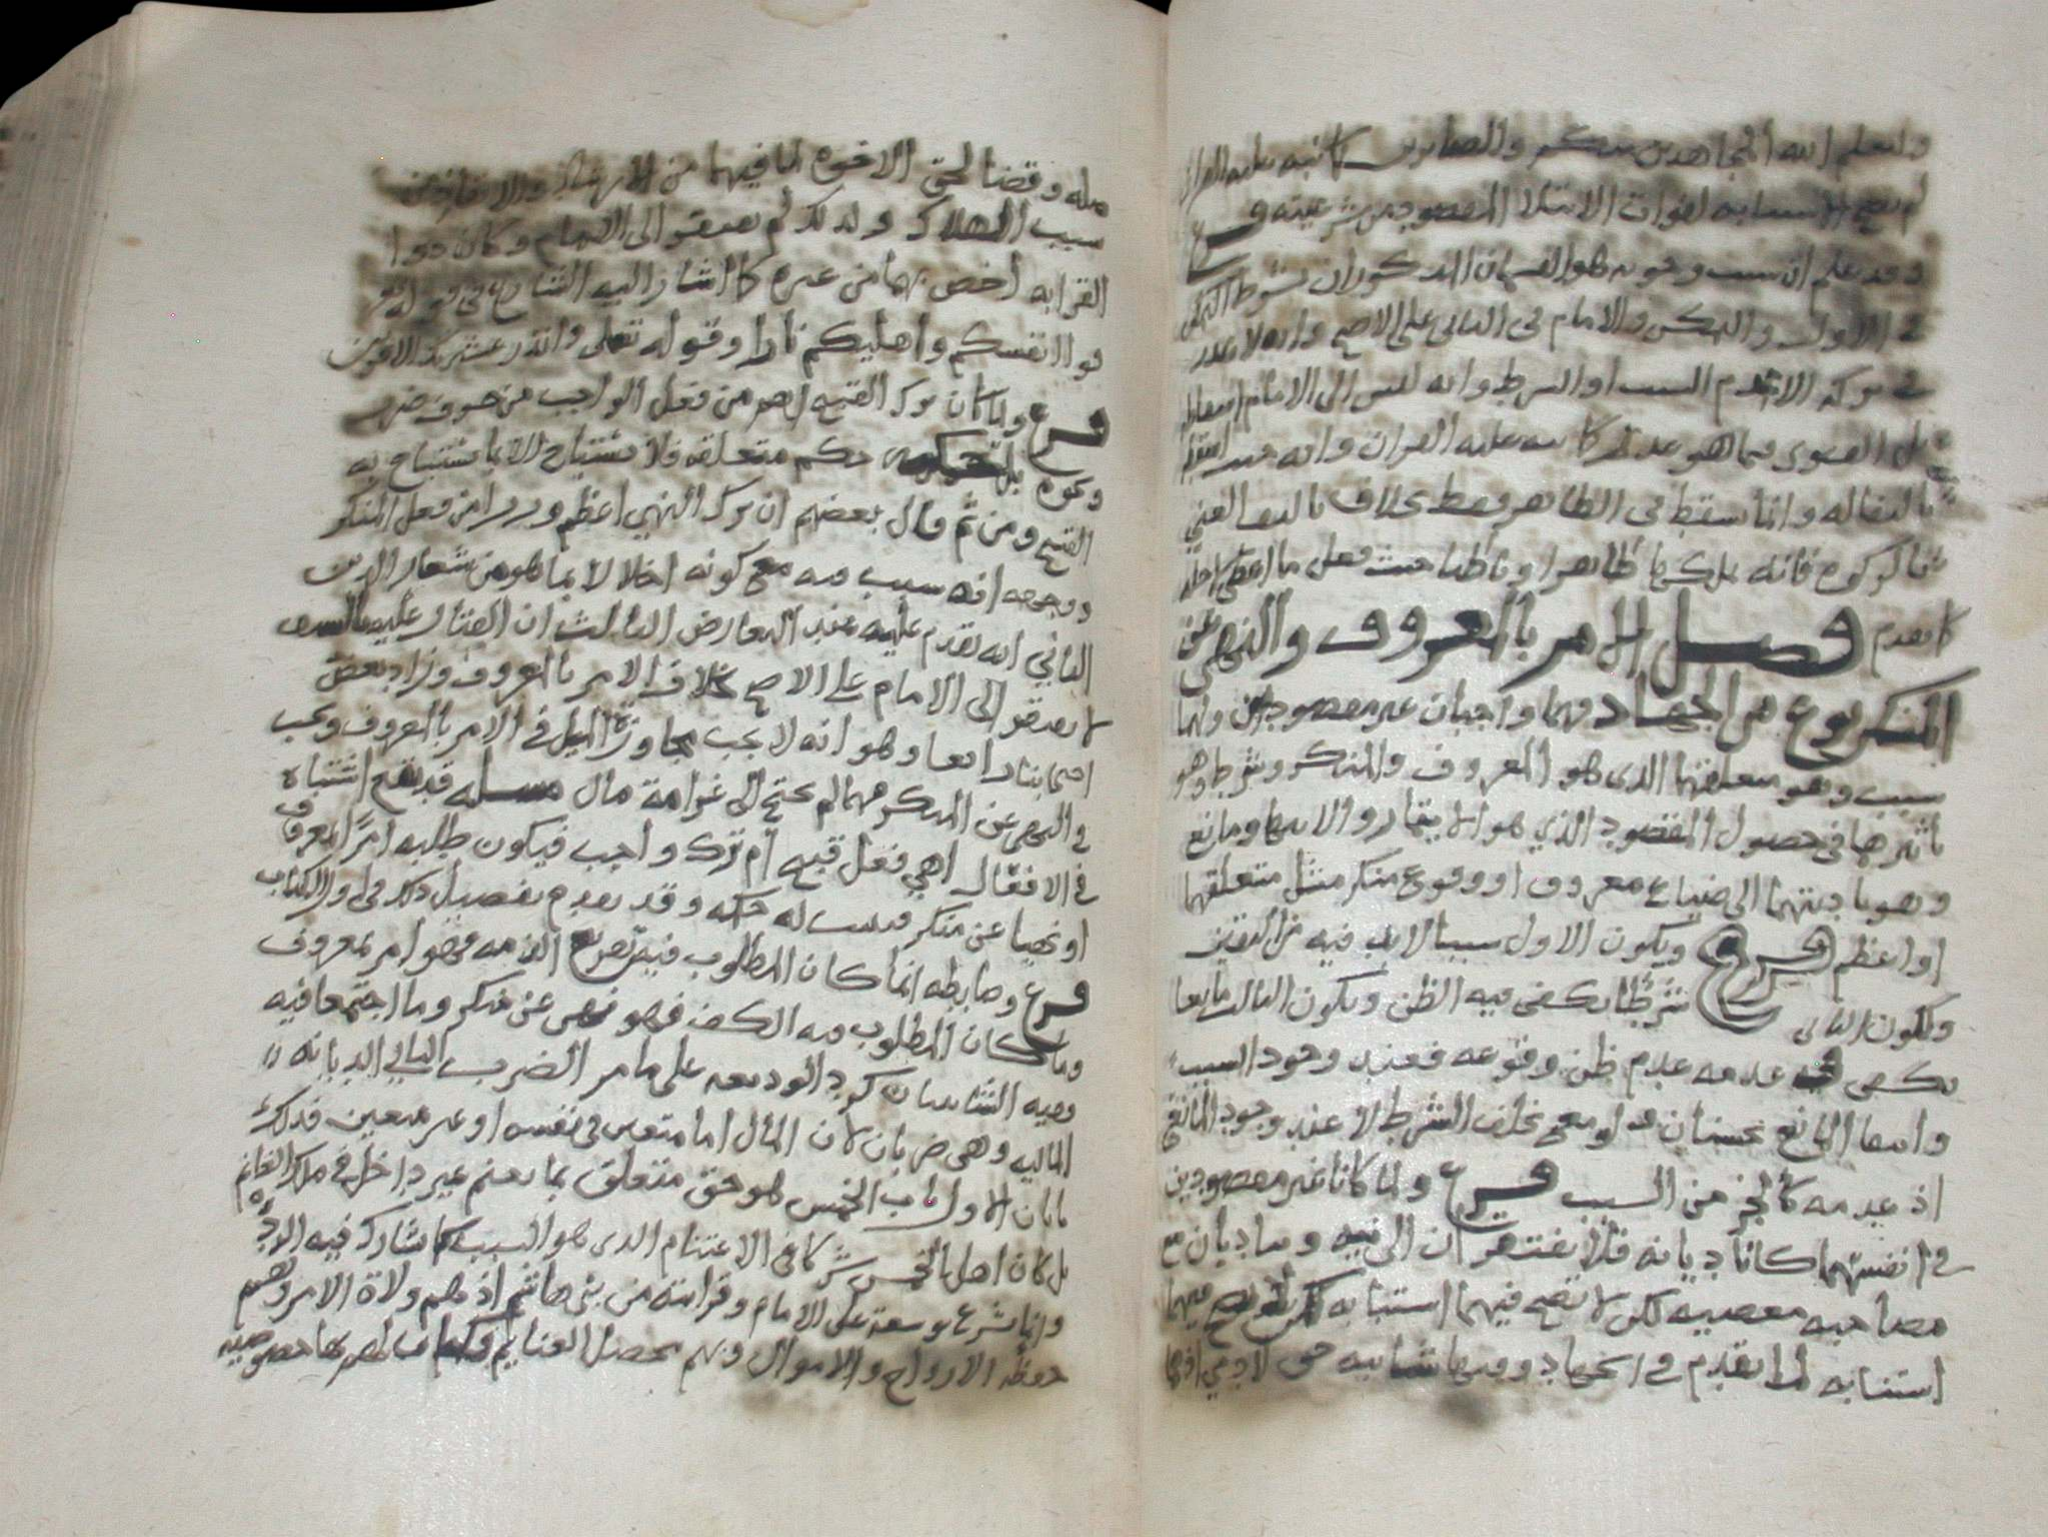 وليعلم الله المجاهدين منكم والصابرين كما نبه عليه القران
لم تصح الاستنابه لفوات الابتلا المقصود من شرعيته فرع
وقد علم ان سبب وجوبه هو القسمان المذكوران بشرط التمكن
في الاول والتمكن والامام في الثاني على الاصح وانه لا عذر
في تركه الا عدم السبب او الشرط وانه ليس الى الامام اسقاط
بل الفتوى بما هو عذر كما نبه عليه القران وانه
بالبقا له وانما سقط في الظاهر فقط بخلاف بالبقا
فانه يملكها ظاهرا وباطنا حيث فعل ما
كما تقدم فصل الامر بالمعروف والنهي عن
المنكر نوع من الجهاد فهما واجبان غير مقصودين ولهما
سبب وهو متعلقهما الذي هو المعروف والمنكر وشرط وهو
تاثيرهما في حصول المقصود الذي هو الايتمار والانتها ومانع
وهو تاديتهما الى ضياع معروف او وقوع منكر مثل متعلقهما
او اعظم فرع ويكون الاول سببا لا بد فيه من اليقين
ولكون الثاني شرطا يكفي فيه الظن ولكون الثالث مانعا
يكفي في عدمه عدم ظن وقوعه فعند وجود السبب
وانتفا المانع يحسنان ولو مع تخلف الشرط لا عند وجود المانع
اذ عدمه كالجزء من السبب فرع ولما كانا غير مقصودين
في انفسهما كانا ديانه فلا يفتقران الى نيه ويتاديان مع
مصاحبه معصيه لكن لا تصح فيهما استنابه
استنابه لما تقدم في الجهاد وفيهما شايبه حق لادمي
مله وقضا لحق الاخوه لما فيهما من الارشاد والانقاذ من
سبب الهلاك ولذلك لم يفتقر الى الامام وكان ذووا
القرابه اخص بهما من غيره كما اشار اليه الشارع في قوله
قوا انفسكم واهليكم نارا وقوله تعالى وانذر عشيرتك الاقربين
فرع ولما كان ترك القبيح اهم من فعل الواجب
ونحوه بل حكم متعلقه فلا يستباح الا بما يستباح به
القبيح ومن ثم قال بعضهم ان ترك النهي اعظم وزرا من فعل المنكر
ووجهه انه سبب فيه مع كونه اخلالا بما هو من شعار الدين
الثاني انه يقدم عليه عند التعارض الثالث ان القتال عليه بالسيف
لا يفتقر الى الامام على الاصح بخلاف الامر بالمعروف وزاد بعض
اصحابنا رابعا وهو انه لا يجب مجاوزة الميل في الامر بالمعروف ويجب
في النهي عن المنكر مهما لم يحتج الى غرامة مال مسله قد يقع اشتباه
في الافعال اهي فعل قبيح ام ترك واجب فيكون طلبه امرا بمعروف
او نهيا عن منكر له حكمه وقد تقدم تفصيل ذلك في اول الكتاب
فرع وضابطه انما كان المطلوب فيه تفريغ الذمه فهو امر بمعروف
وما كان المطلوب منه الكف فهو نهي عن منكر وما اجتمعا فيه
ففيه الشايبتان كرد الوديعه على ما مر الضرب الثاني الديانه
الماليه وهي ضربان لان المال اما متعين في نفسه او غير متعين فذلك
بابان الاول باب الخمس هو حق متعلق بما يغنم غير داخل في ملك الغانم
بل كان اهل الخمس شركا في الاغتنام الذي هو السبب كما شارك فيه الردء
وانما شرع توسعة على الامام وقرابته من بني هاشم اذ هم ولاة الامر وبهم
حفظه الارواح والاموال وبهم تحصل الغنايم فكان لهم بها خصوصيه